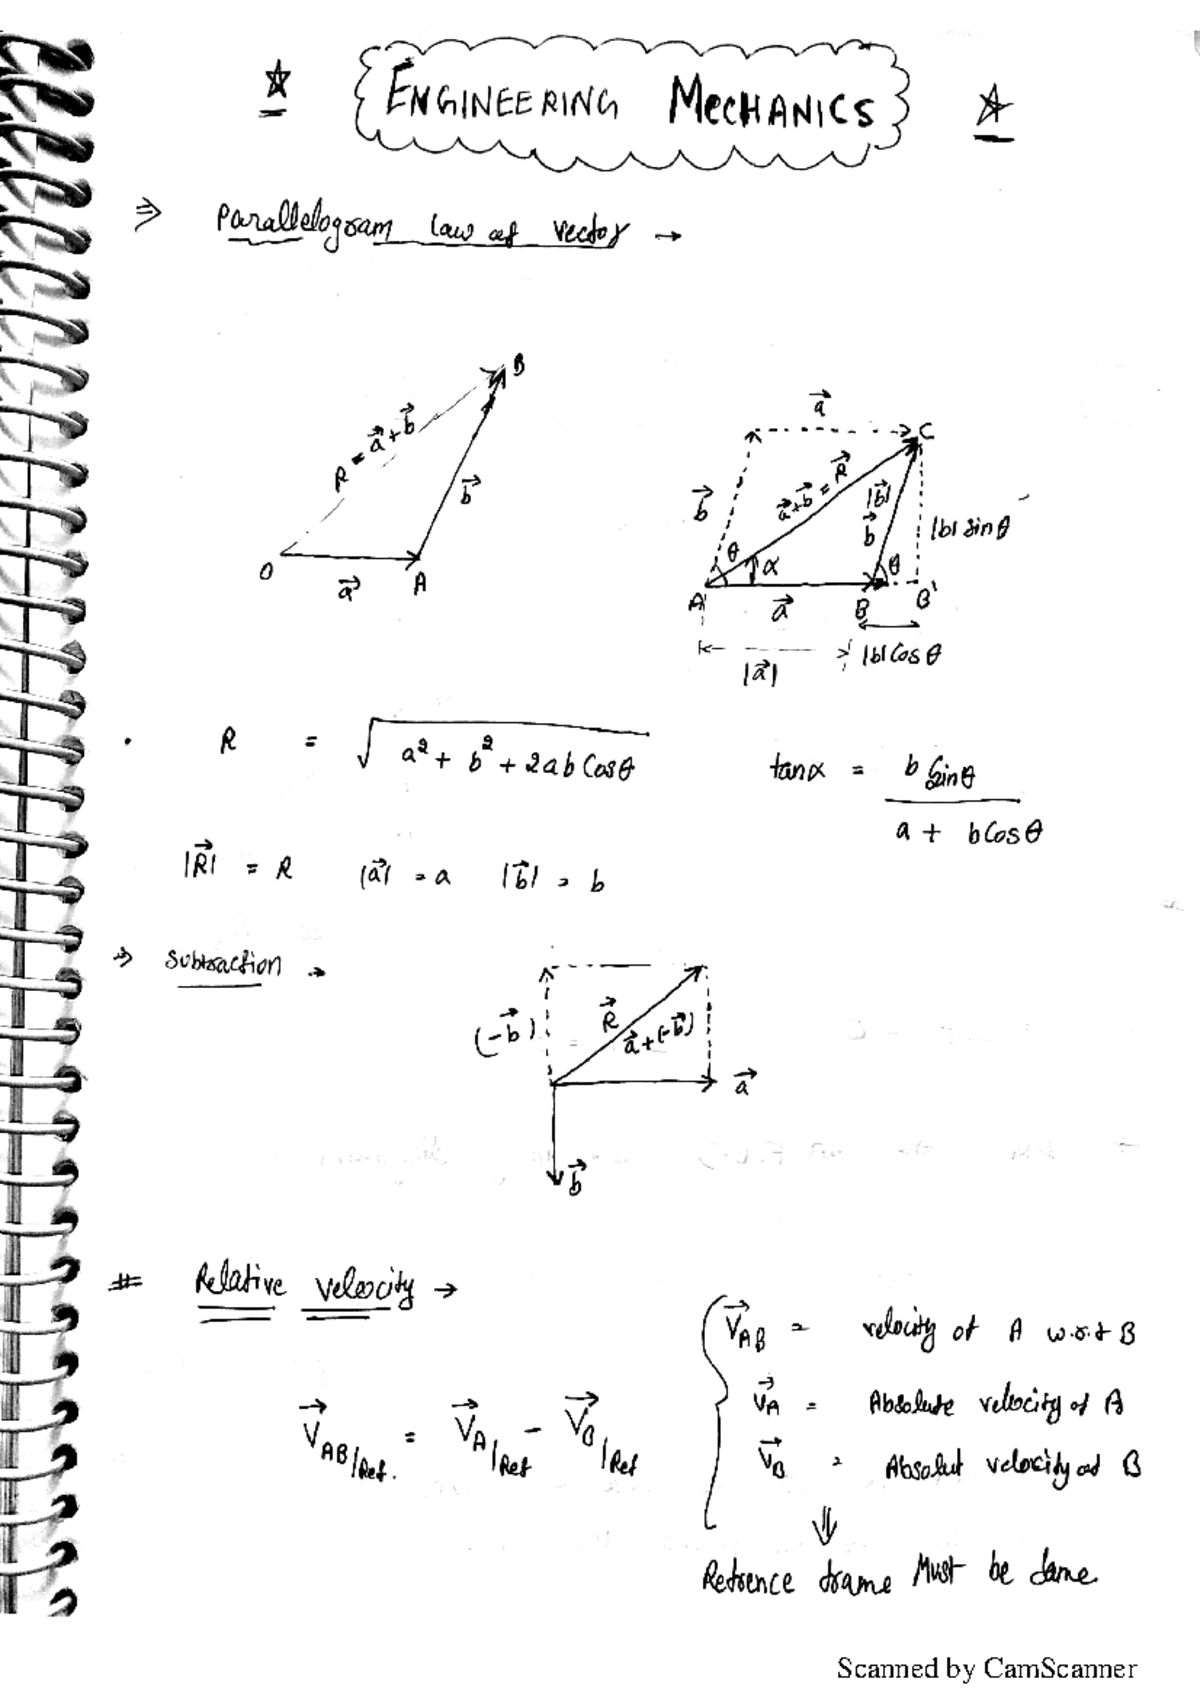 ENGINEERING MECHANICS
⇒ Parallelogram law of vector →
B
R = a⃗ + b⃗
b⃗
O
a⃗
A
a⃗
C
b⃗
a⃗+b⃗ = R⃗
|b⃗|
b⃗
|b| sinθ
θ
α
θ
A
a⃗
B
B'
|a⃗|
|b| Cosθ
R = √(a² + b² + 2ab Cosθ)
tanα = b Sinθ / (a + b Cosθ)
|R⃗| = R |a⃗| = a |b⃗| = b
⇒ Subtraction →
(-b⃗)
R⃗
a⃗+(-b⃗)
a⃗
b⃗
# Relative velocity →
V⃗AB/Ref. = V⃗A/Ref - V⃗B/Ref
V⃗AB = velocity of A w.r.t B
V⃗A = Absolute velocity of A
V⃗B = Absolut velocity of B
⇓
Refrence frame Must be same
Scanned by CamScanner